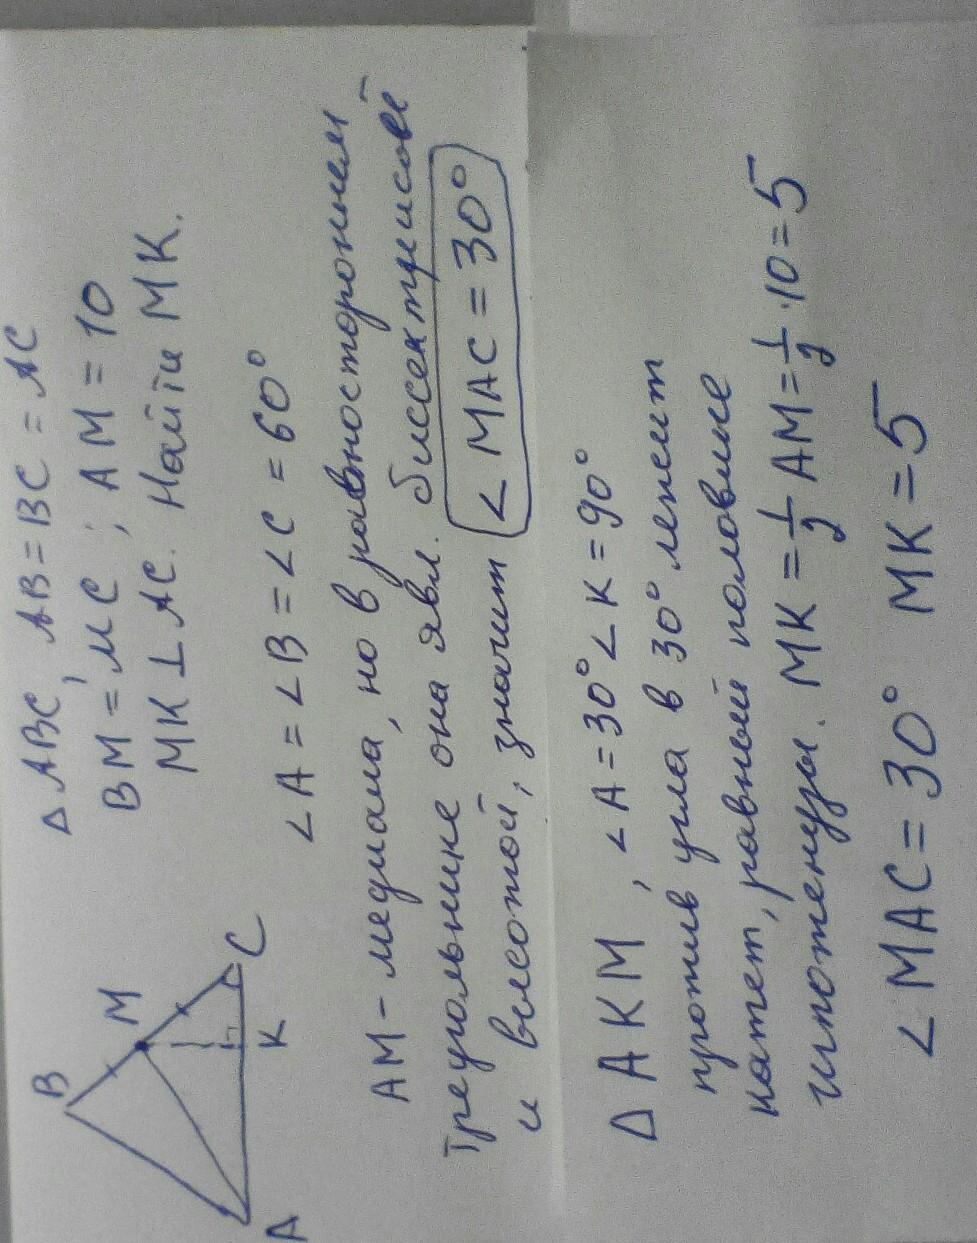 B
M
A
K
C
Δ ABC, AB = BC = AC
BM = MC ; AM = 10
MK ⊥ AC. Найти MK.
∠A = ∠B = ∠C = 60°
AM - медиана, но в равностороннем
треугольнике она явл. биссектрисой
и высотой, значит ∠ MAC = 30°
Δ AKM, ∠A = 30° ∠K = 90°
против угла в 30° лежит
катет, равный половине
гипотенузы. MK = 1/2 AM = 1/2 · 10 = 5
∠ MAC = 30° MK = 5